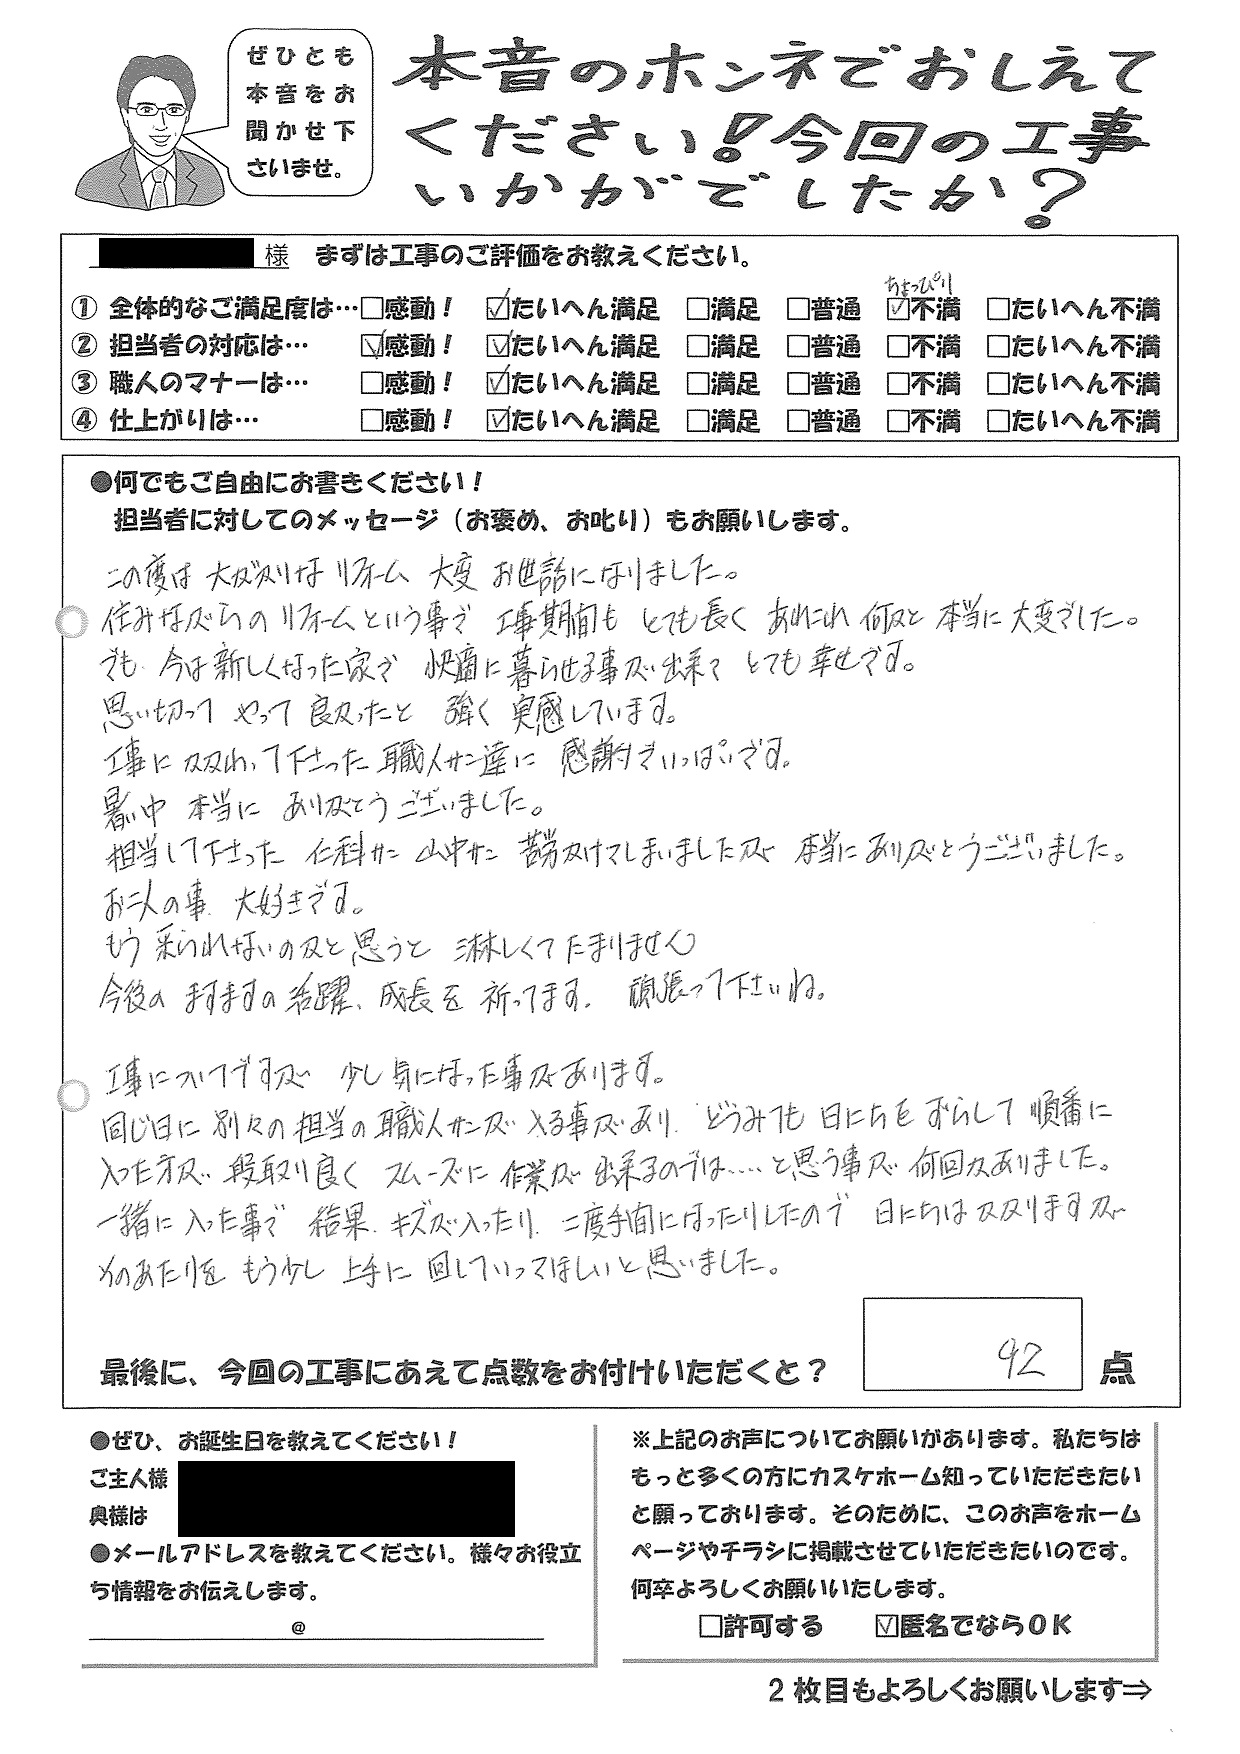 ぜひとも
本音をお
聞かせ下
さいませ。
本音のホンネでおしえて
ください!今回の工事
いかがでしたか?
様 まずは工事のご評価をお教えください。
ちょっぴり
① 全体的なご満足度は…□感動! ☑たいへん満足 □満足 □普通 ☑不満 □たいへん不満
② 担当者の対応は… ☑感動! ☑たいへん満足 □満足 □普通 □不満 □たいへん不満
③ 職人のマナーは… □感動! ☑たいへん満足 □満足 □普通 □不満 □たいへん不満
④ 仕上がりは… □感動! ☑たいへん満足 □満足 □普通 □不満 □たいへん不満
●何でもご自由にお書きください!
担当者に対してのメッセージ(お褒め、お叱り)もお願いします。
この度は 大がかりな リフォーム 大変 お世話になりました。
住みながらの リフォームという事で 工事期間も とても長く あれこれ 何かと 本当に 大変でした。
でも 今は新しくなった家で 快適に暮らせる事が出来て とても 幸せです。
思い切って やって 良かったと 強く 実感しています。
工事に かかわって下さった 職人サン達に 感謝でいっぱいです。
暑い中 本当に ありがとうございました。
担当して下さった 仁科サン 山中サン 苦労かけてしまいましたが 本当にありがとうございました。
お二人の事 大好きです。
もう 来られないのかと 思うと 淋しくて たまりません
今後の ますますの 活躍、成長を 祈ってます. 頑張って下さいね。
工事についてですが 少し 気になった事があります。
同じ日に 別々の 担当の 職人サンが 入る事があり. どうみても 日にちを ずらして 順番に
入った方が 段取り良く スムーズに 作業が 出来るのでは……と 思う事が 何回かありました。
一緒に 入った事で 結果. キズが入ったり. 二度手間になったりしたので 日にちは かかりますが
そのあたりを もう少し 上手に 回していってほしいと思いました。
最後に、今回の工事にあえて点数をお付けいただくと? 92 点
●ぜひ、お誕生日を教えてください!
ご主人様
奥様は
●メールアドレスを教えてください。様々お役立
ち情報をお伝えします。
@
※上記のお声についてお願いがあります。私たちは
もっと多くの方にカスケホーム知っていただきたい
と願っております。そのために、このお声をホーム
ページやチラシに掲載させていただきたいのです。
何卒よろしくお願いいたします。
□許可する ☑匿名でならOK
2枚目もよろしくお願いします⇒